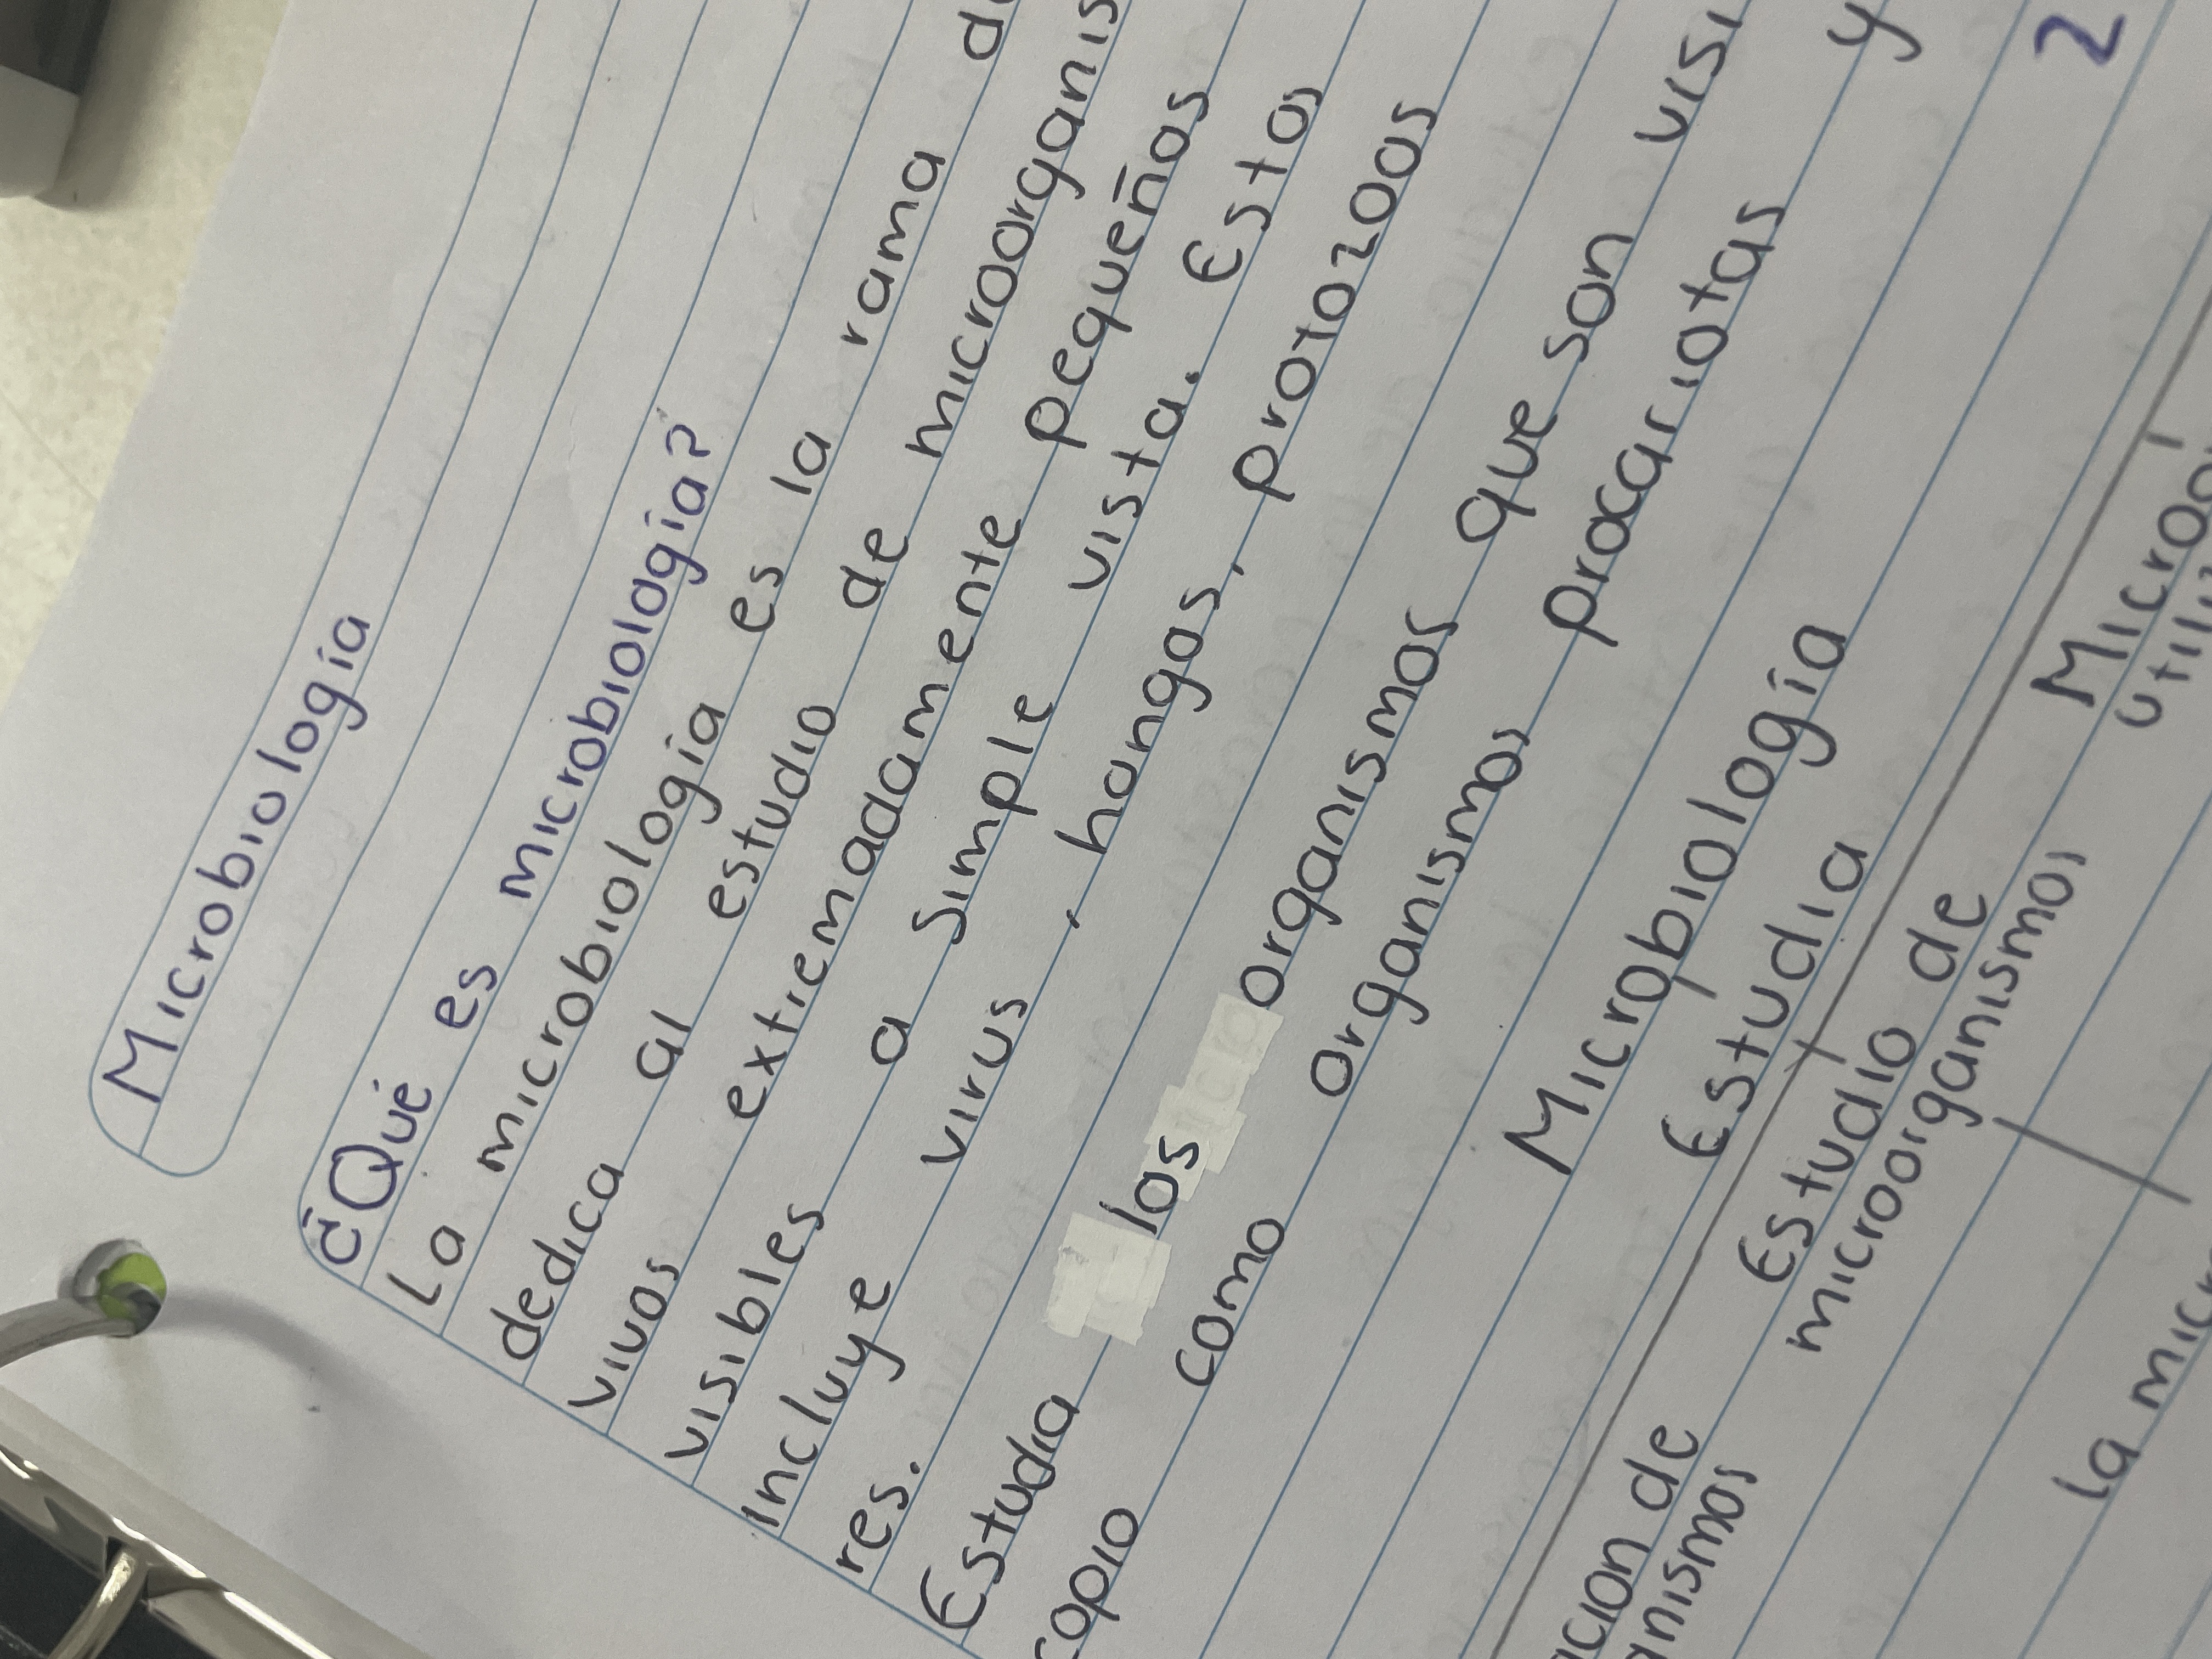 Microbiología
¿Qué es microbiología?
La microbiología es la rama
dedica al estudio de microorganis
vivos extremadamente pequeños
visibles a simple vista. Estos
incluye virus, hongos, protozoos
res.
Estudia los organismos que son visi
copio como organismos procariotas y
2
Microbiología
Estudia
ación de
anismos
Estudio de
microorganismos
la micr